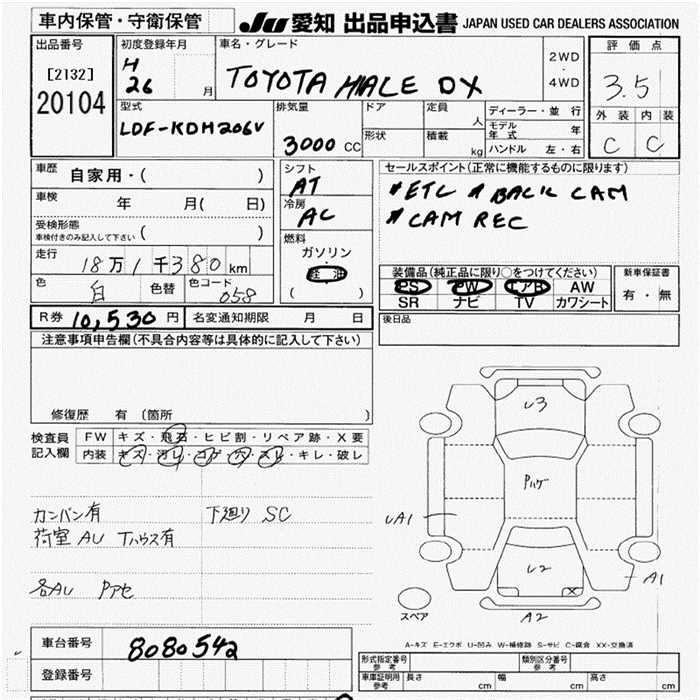 車内保管・守衛保管
JU 愛知 出品申込書 JAPAN USED CAR DEALERS ASSOCIATION
出品番号
[2132]
20104
初度登録年月
H
26 月
車名・グレード
TOYOTA HIALE DX
2WD
・
4WD
評価点
3.5
外装 内装
C C
型式
LDF-KDH206V
排気量
3000 CC
ドア
形状
定員
人
積載
kg
ディーラー・並行
モデル年式 年
ハンドル 左・右
車歴
自家用・( )
車検
年 月( 日)
受検形態
車検付きのみ記入して下さい ( )
走行
18万1千380km
色
白 色替 色コード 058
シフト
AT
冷房
AC
燃料
ガソリン
・
軽油
( )
セールスポイント(正常に機能するものに限ります)
*ETC * BACK CAM
* CAM REC
装備品(純正品に限り○をつけてください)
PS PW エアB AW
SR ナビ TV カワシート
新車保証書
有・無
R券 10,530 円 名変通知期限 月 日
後日品
注意事項申告欄(不具合内容等は具体的に記入して下さい)
修復歴 有(箇所 )
検査員
記入欄
FW キズ・飛石・ヒビ割・リペア跡・X要
内装 キズ・汚レ・コゲ・穴・スレ・キレ・破レ
カンバン有 下廻り SC
荷室AU Tハウス有
各AU Pアセ
U3
Pハゲ
UA1
U2
X
A1
A2
スペア
A-キズ E-エクボ U-凹み W-補修跡 S-サビ C-腐食 XX-交換済
車台番号 8080542
登録番号
形式指定番号
参考
類別区分番号
参考
車庫証明用
参考
長さ cm 幅 cm 高さ cm